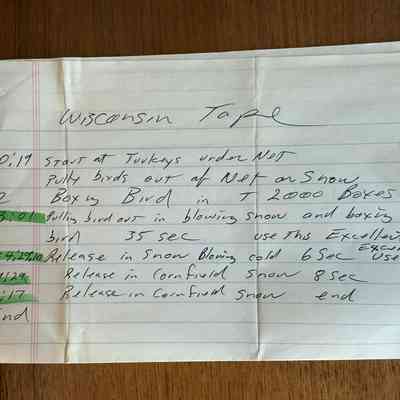 Wisconsin Tape
0:19 Start at Turkeys under Net
Pully birds out of Net on Snow
Boxing Bird in T 2000 Boxes
3:01 Pulling bird out in blowing snow and boxing
bird 35 sec use this Excellent
Release in Snow Blowing cold 6 Sec Use
:24 Release in Cornfield Snow 8 Sec
:17 Release in Cornfield Snow end
End